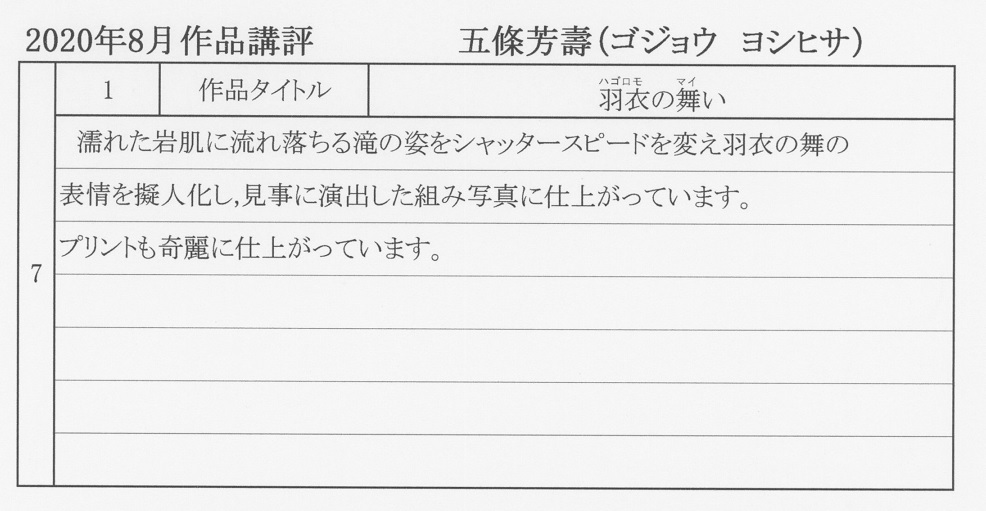 2020年8月作品講評 五條芳壽(ゴジョウ ヨシヒサ)
1 作品タイトル 羽衣の舞い
ハゴロモ マイ
濡れた岩肌に流れ落ちる滝の姿をシャッタースピードを変え羽衣の舞の
表情を擬人化し,見事に演出した組み写真に仕上がっています。
プリントも奇麗に仕上がっています。
7